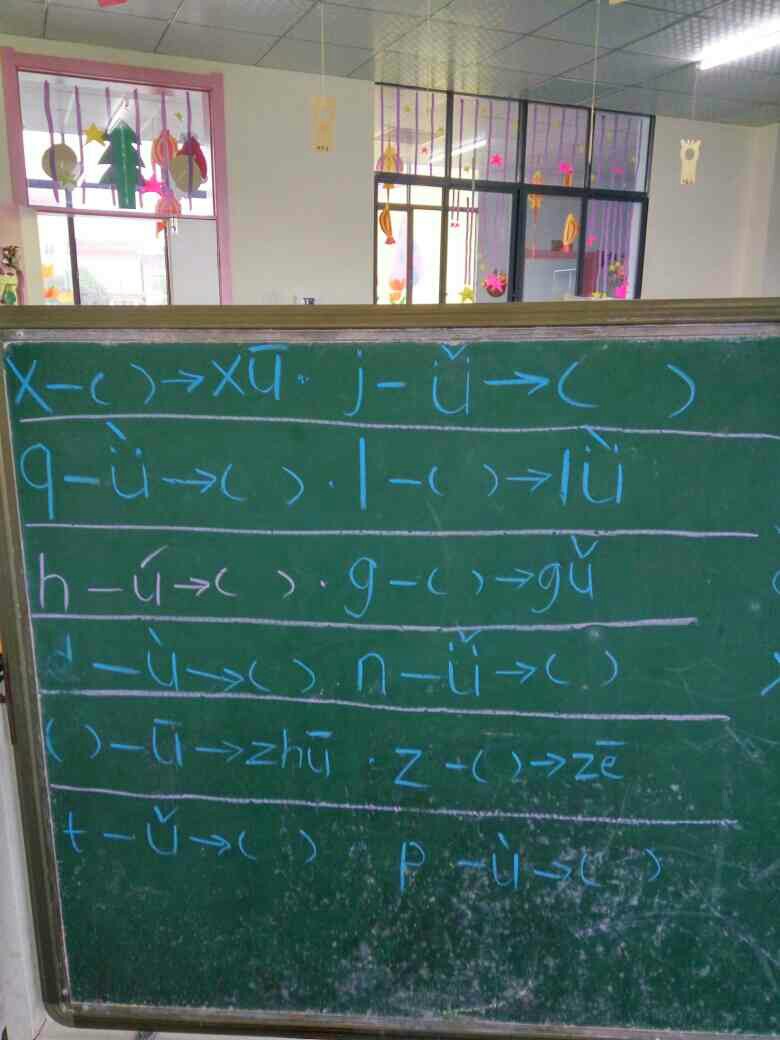 x-( )→xū. j-ǚ→( )
q-ǜ→( ). l-( )→lǜ
h-ú→( ). g-( )→gǔ
d-ù→( ) n-ǚ→( )
( )-ū→zhū. z-( )→zē
t-ǔ→( ) p-ù→( )